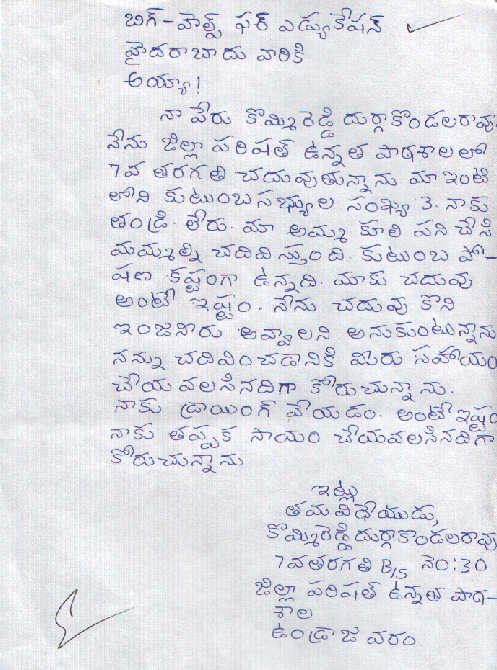 బిగ్-హెల్ప్ ఫర్ ఎడ్యుకేషన్
హైదరాబాదు వారికి
అయ్యా!
నా పేరు కొమ్మిరెడ్డి దుర్గాకొండలరావు
నేను జిల్లా పరిషత్ ఉన్నత పాఠశాలలో
7వ తరగతి చదువుతున్నాను మా ఇంటి
లోని కుటుంబ సభ్యుల సంఖ్య 3. నాకు
తండ్రి లేరు. మా అమ్మ కూలి పని చేసి
మమ్మల్ని చదివిస్తుంది. కుటుంబ పో-
షణ కష్టంగా ఉన్నది. మాకు చదువు
అంటే ఇష్టం. నేను చదువు కొని
ఇంజనీరు అవ్వాలని అనుకుంటున్నాను
నన్ను చదివించడానికి మీరు సహాయం
చేయ వలసినదిగా కోరుచున్నాను.
నాకు డ్రాయింగ్ వేయడం. అంటే ఇష్టం
నాకు తప్పక సాయం చేయవలసినదిగా
కోరుచున్నాను
ఇట్లు
తమ విధేయుడు,
కొమ్మిరెడ్డి దుర్గాకొండలరావు
7వ తరగతి B/S నెం:30
జిల్లా పరిషత్ ఉన్నత పాఠ-
శాల
ఉండ్రాజవరం